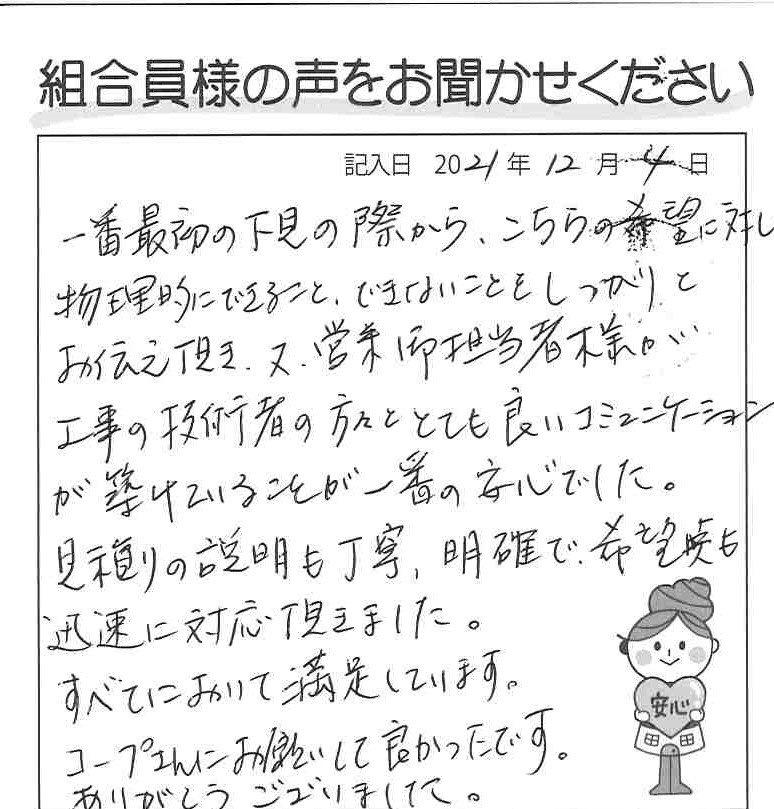 組合員様の声をお聞かせください
記入日 2021年12月4日
一番最初の下見の際から、こちらの希望に対し
物理的にできること、できないことをしっかりと
お伝え頂き、又、営業御担当者様が
工事の技術者の方々ととても良いコミュニケーション
が築けていることが一番の安心でした。
見積りの説明も丁寧、明確で、希望も
迅速に対応頂きました。
すべてにおいて満足しています。
コープさんにお願いして良かったです。
ありがとうございました。
安心